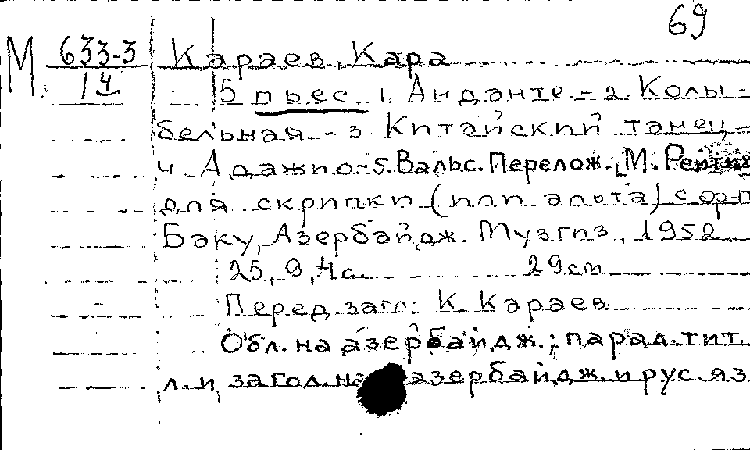 69
М 633-3
14
Караев, Кара
5 пьес. 1. Анданте - 2. Колы-
бельная - 3. Китайский танец -
4. Адажио - 5. Вальс. Перелож. М.
для скрипки (или альта) с орг
Баку, Азербайдж. Музгиз, 1952
25, 9, 4 с. 29 см
Перед загл.: К. Караев
Обл. на азербайдж.; парал. тит.
л. и загол. на азербайдж. и рус. яз